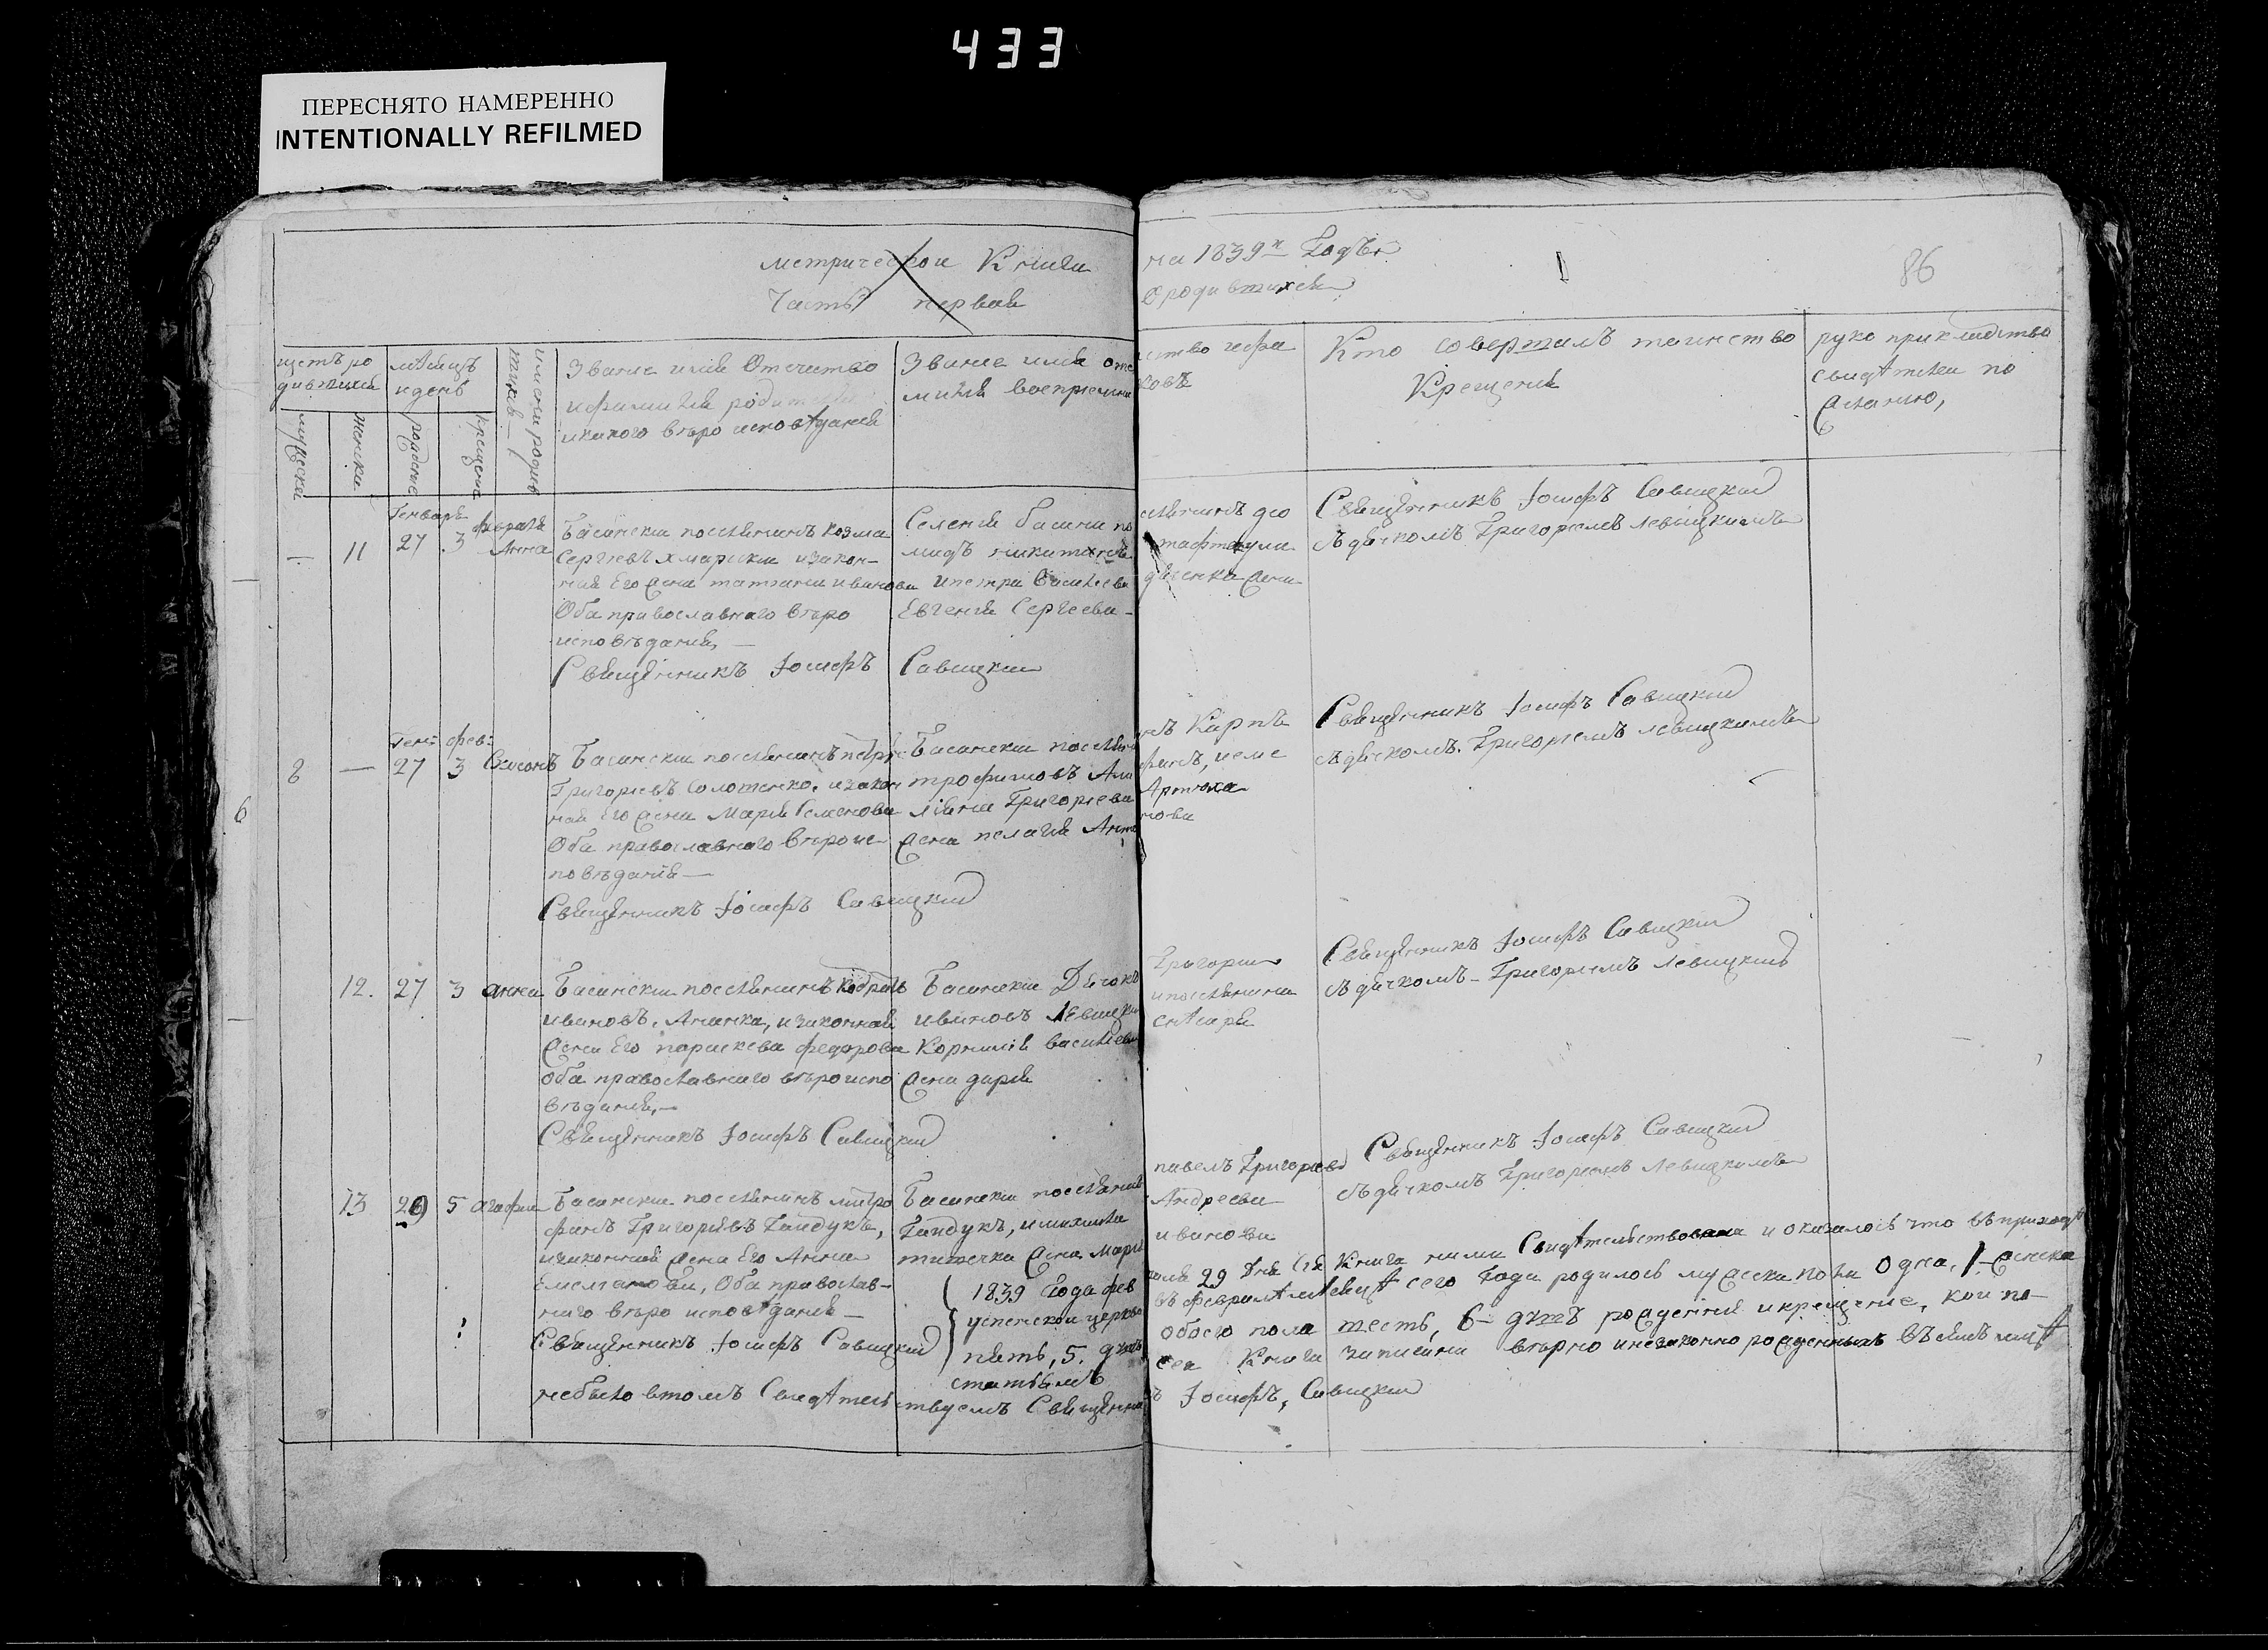 433
ПЕРЕСНЯТО НАМЕРЕННО
INTENTIONALLY REFILMED
метрической Книги на 1839й Годъ
86
Часть первая о родившихся
щетъ ро
дившихся
мѣсяцъ
и день
имена родив
шихъ
Звание имя Отечество
и фамилия родителей
и какого вѣро исповѣдания
Звание имя оте ство и фа
милия восприемни ковъ
Кто совершалъ таинство
Крещения
руко прикладство
свидѣтелей по
желанию,
мужеска
женска
рождение
крещение
Генваря
февраля
11
27
3
Анна
Басанский поселянинъ козма
Сергѣевъ хмарский и закон-
ная Его жена татьяна иванова
Оба православнаго вѣро
исповѣдания, —
Священникъ Іосифъ Савицкий
Селения басани
мидъ никитинъ
и петра василиева жена
Евгения Сергеева —
Священникъ Іосифъ Савицкий
съ дячкомъ Григориемъ левицкимъ
6
Ген: фев:
8
—
27
3
Басанский поселянинъ петръ
Григорьевъ Солошенко, и закон
ная Его жена Мария Семенова
Оба православнаго вѣроис
повѣдания —
Священникъ Іосифъ Савицкий
Басанский поселянинъ Карпъ
трофимовъ
Григориева Артюха
жена пелагия Антонова
Священникъ Іосифъ Савицкий
съ дячкомъ. Григориемъ левицкимъ
12.
27
3
анна
Басанский поселянинъ кодратъ
ивановъ, Ананка, и законная
жена Его параскева федорова
оба православнаго вѣроиспо
вѣдания, —
Священникъ Іосифъ Савицкий
Басанский Дячокъ Григорий
ивановъ Левицкий и поселянина
Корнилия василиева
жена дария
Священникъ Іосифъ Савицкий
съ дячкомъ — Григориемъ левицкимъ
13
29
5
агафия
Басанский поселянинъ митро
фанъ Григориевъ Гайдукъ,
и законная жена Его Анна
Емелианова, Оба православ-
наго вѣро исповѣдания —
Священникъ Іосифъ Савицкий
Басанский поселянинъ павелъ Григориевъ
Гайдукъ, и михаила Андреева
жена Мария иванова
Священникъ Іосифъ Савицкий
съ дячкомъ Григориемъ Левицкимъ
1839 Года февраля 29 Дня Сия Книга нами Свидѣтельствована и оказалось что въ приходѣ
успенской церкви въ февралѣ мѣсяцѣ сего Года родилось мужеска пола Одна, 1 — женска
пять, 5. душъ обоего пола шесть, 6 — душъ рождение и крещение, кои по —
статьямъ сея Книга записаны вѣрно и незаконно рожденныхъ въ семъ мѣсяцѣ
небыло въ томъ Свидѣтельствуемъ Священникъ Іосифъ, Савицкий